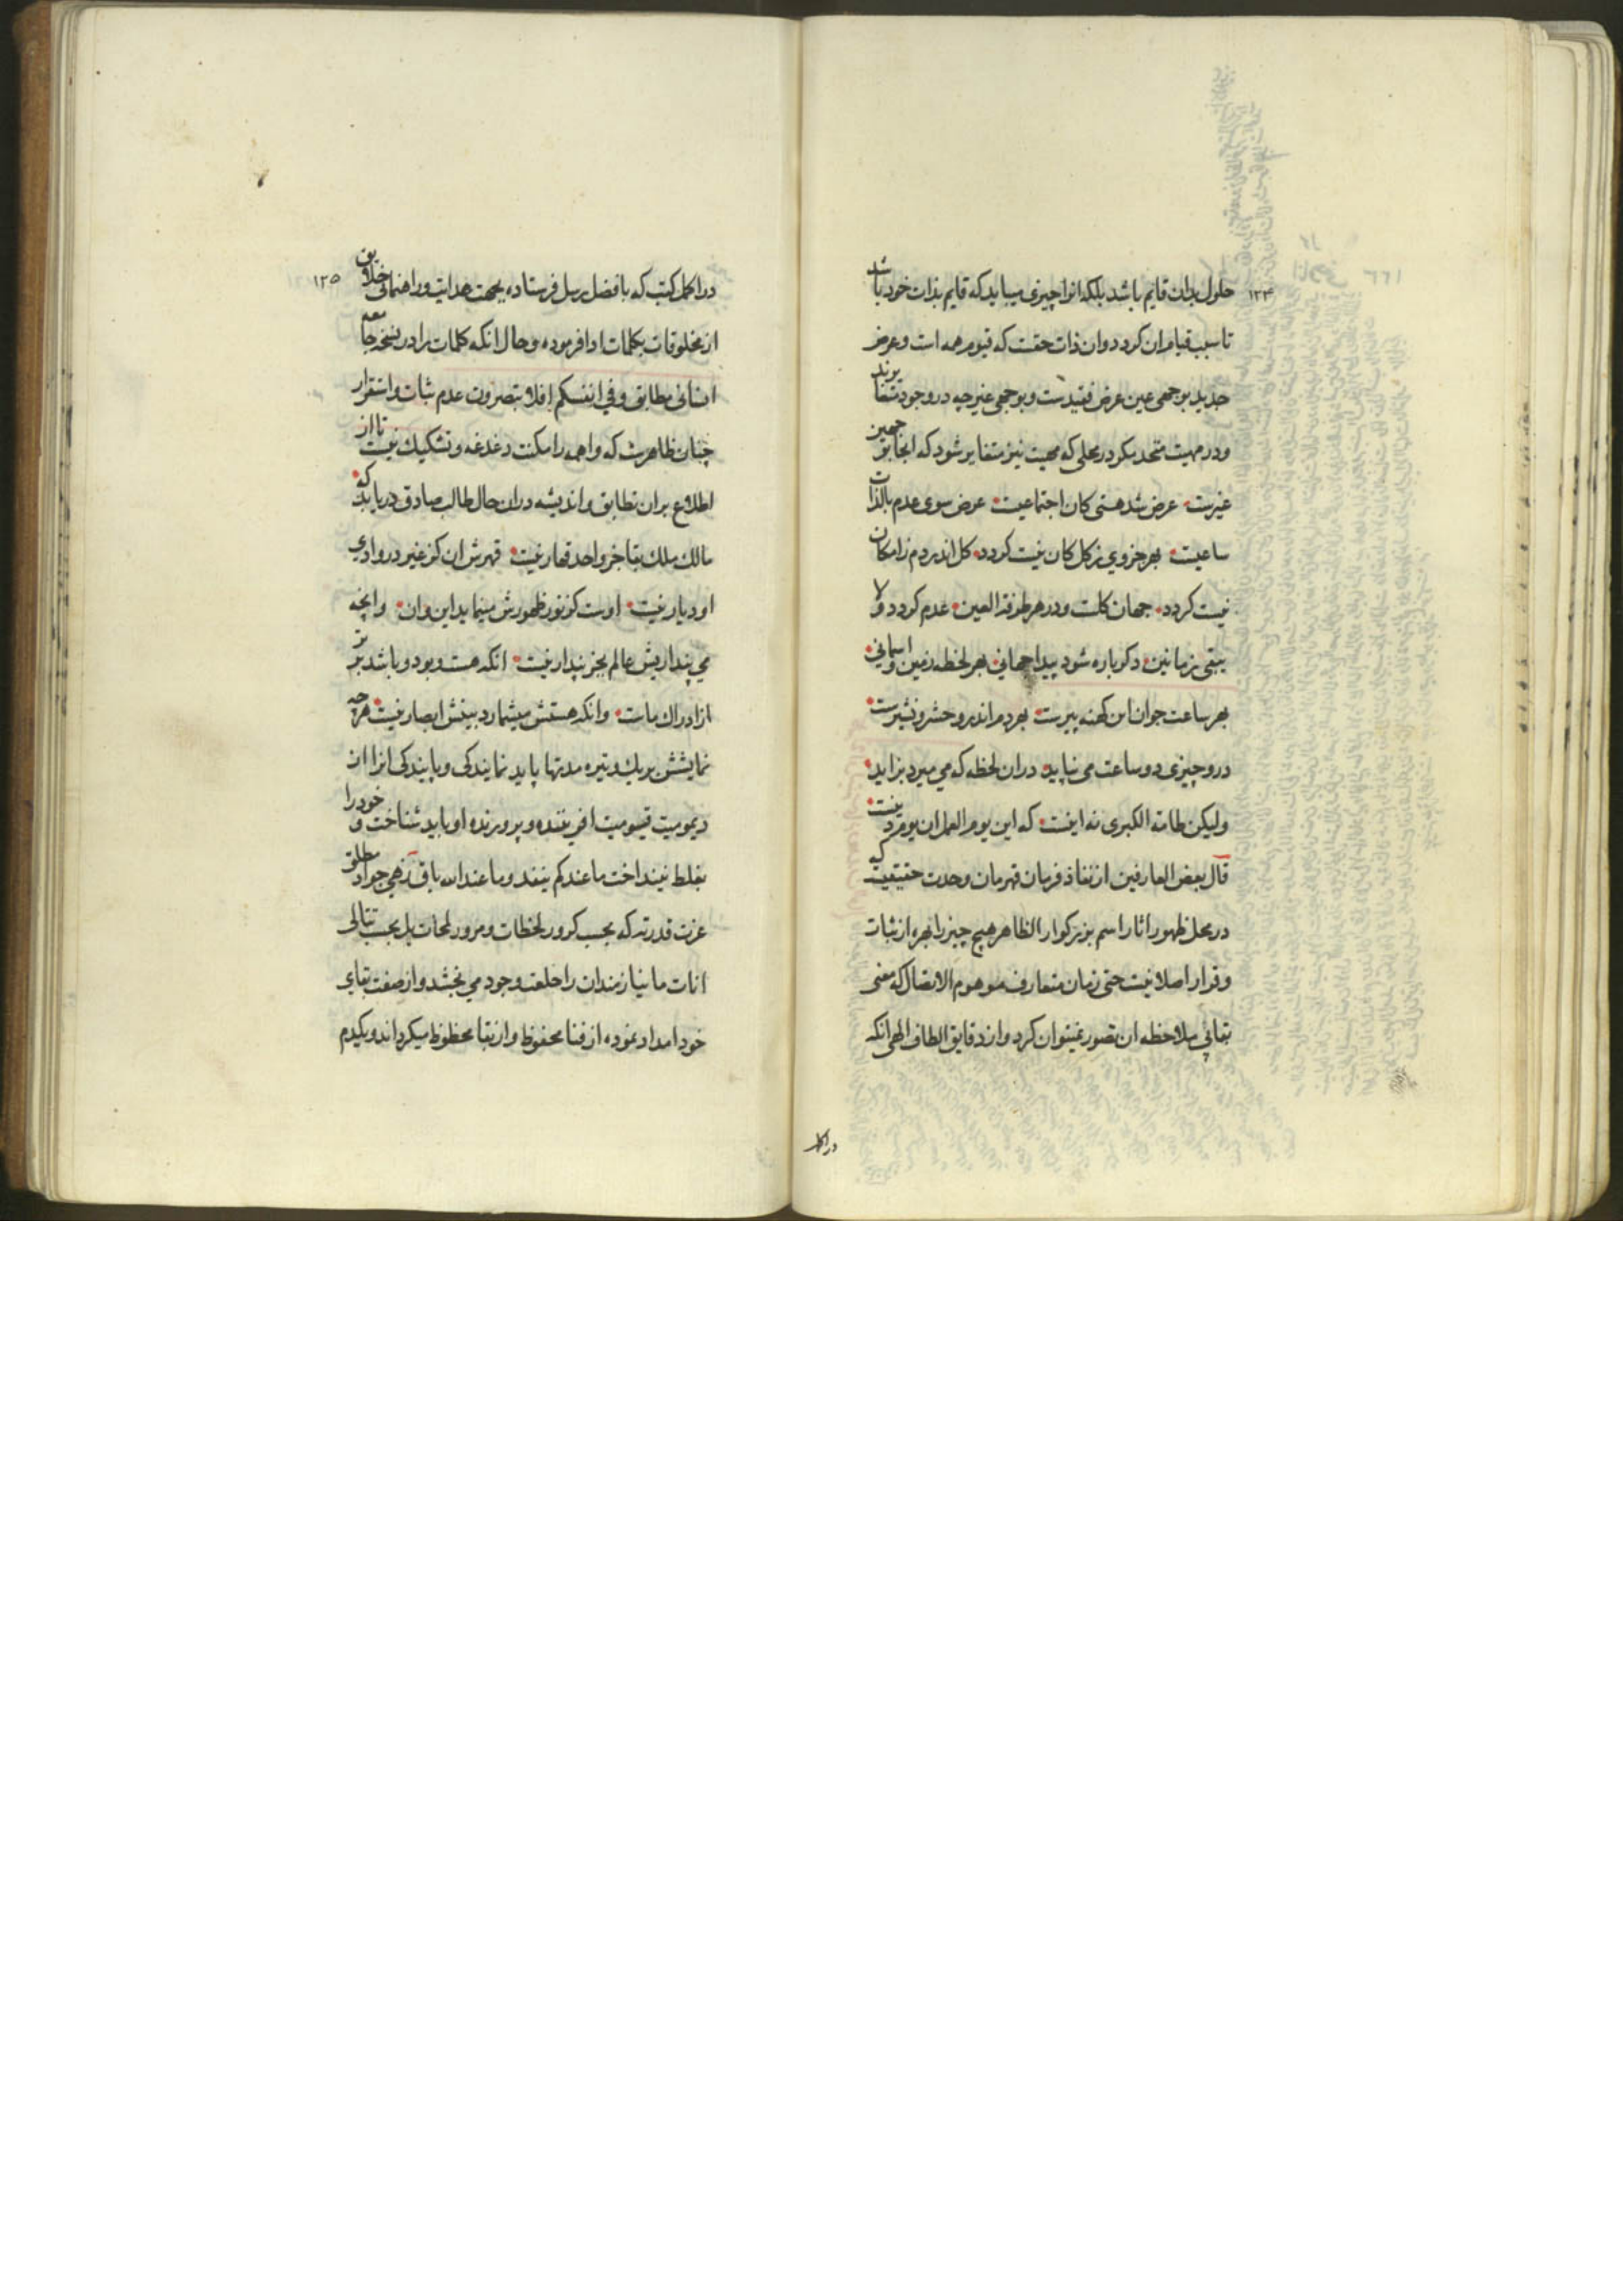 حلول بدان قایم باشد بلکه انرا چیزی میباید که قایم بذات خود باشد
۱۲۴
تا سبب قیام ان کردد وان ذات حقست که قیوم همه است وعرض
جدید بوجهی عین عرض فقیدست وبوجهی غیر چه در وجود متغایرند
ودر مهیت متحد مکر در محلی که مهیت نیز متغایر شود که انجا بهر جهتین
غیرست عرض شد هستی کان اجتماعیست عرض سوی عدم بالذات
ساعیست بهر جزوی ز کل کان نیست کردد کل اندر دم ز امکان
نیست کردد جهان کلست ودر هر طرفة العین عدم کردد ولا
یبقی زمانین دکر باره شود پیدا جهانی بهر لحظه زمین واسمانی
بهر ساعت جوان این کهنه پیرست بهر دم اندرو حشر ونشیرست
درو چیزی دو ساعت می نپاید دران لحظه که می میرد بزاید
ولیکن طامة الکبری نه اینست که این یوم العمل ان یوم دینست
قال بعض العارفین از نفاذ فرمان قهرمان وحدت حقیقیت که
در محل ظهور اثار اسم بزرکوار الظاهر هیچ چیز را بهره از ثبات
وقرار اصلا نیست حتی زمان متعارف موهوم الاتصال که معنی
بقا بی ملاحظه ان تصور نمیتوان کرد واز دقایق الطاف الهی انکه
در اکمل
در اکمل کتب که با فضل رسل فرستاده بجهت هدایت وراهنمائی خلایق
۱۲۵
از مخلوقات بکلمات ادا فرموده وحال انکه کلمات را در نسخه جامعه
انسانی مطابق وفی انفسکم افلا تبصرون عدم ثبات واستقرار
چنان ظاهرست که واهمه را مکنت دغدغه وتشکیک نیست تا از
اطلاع بران تطابق واندیشه دران حال طالب صادق دریابد که
مالک ملک بقا جز واحد قهار نیست قهرش ان کز غیر در وادی
او دیار نیست اوست کز نور ظهورش مینماید این وان وانچه
می پنداریش عالم بجز پندار نیست انکه هست وبود وباشد برتر
از ادراک ماست وانکه هستش میشمارد بینش ابصار نیست هرچه
نمایشش بر یک وتیره مدتها پاید نمایندکی وپایندکی انرا از
دیمومیت قیومیت افریننده وپرورنده او باید شناخت وخود را
بغلط نینداخت ما عندکم ینفد وما عند الله باق زهی جواد مطلق
عزت قدرته که بحسب کرور لحظات ومرور لمحات بل بحسب تتالی
انات ما نیازمندان را خلعت وجود می بخشد واز صفت بقای
خود امداد نموده از فنا محفوظ واز بقا محظوظ میکرداند ویکدم